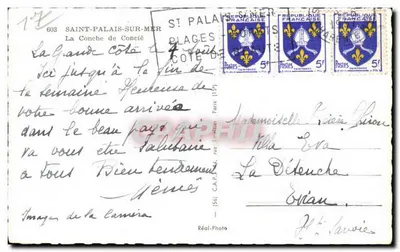 17
603 SAINT-PALAIS-SUR-MER
La Conche de Concié
ST PALAIS S MER
PLAGES
COTE DE
FRANÇAISE
FRANÇAISE
FRANÇAISE
5F
5F
5F
La Grande Côte le 4 Août
Ici jusqu'à la fin de
la semaine Heureuse de
votre bonne arrivée
dans le beau pays qui
va vous être
à tous Bien tendrement
Images de la Caméra
Réal-Photo
Mademoiselle
Villa Eva
La Détenche
Evian
Hte Savoie